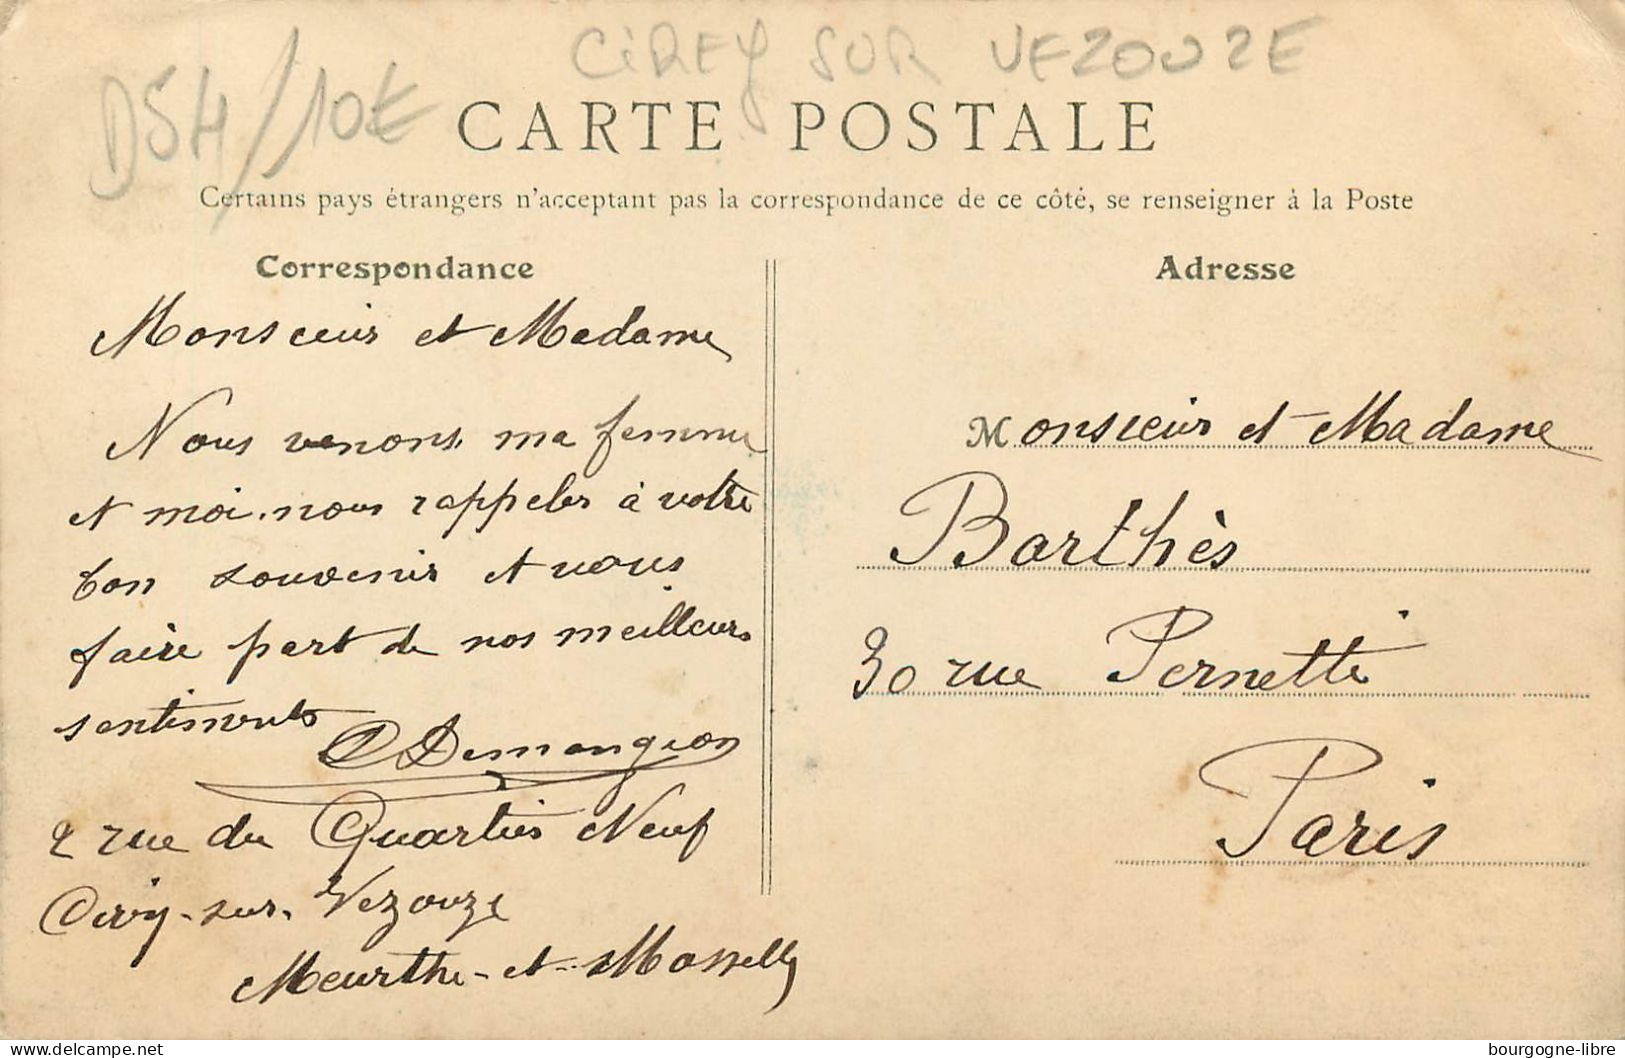 CIREY SUR VEZOUZE
D54/10€
CARTE POSTALE
Certains pays étrangers n'acceptant pas la correspondance de ce côté, se renseigner à la Poste
Correspondance
Monsieur et Madame
Nous venons, ma femme
et moi, nous rappeler à votre
bon souvenir et vous
faire part de nos meilleurs
sentiments
Demangeon
2 rue du Quartier Neuf
Cirey-sur-Vezouze
Meurthe-et-Moselle
Adresse
Monsieur et Madame
Barthès
30 rue Pernette
Paris
bourgogne-libre